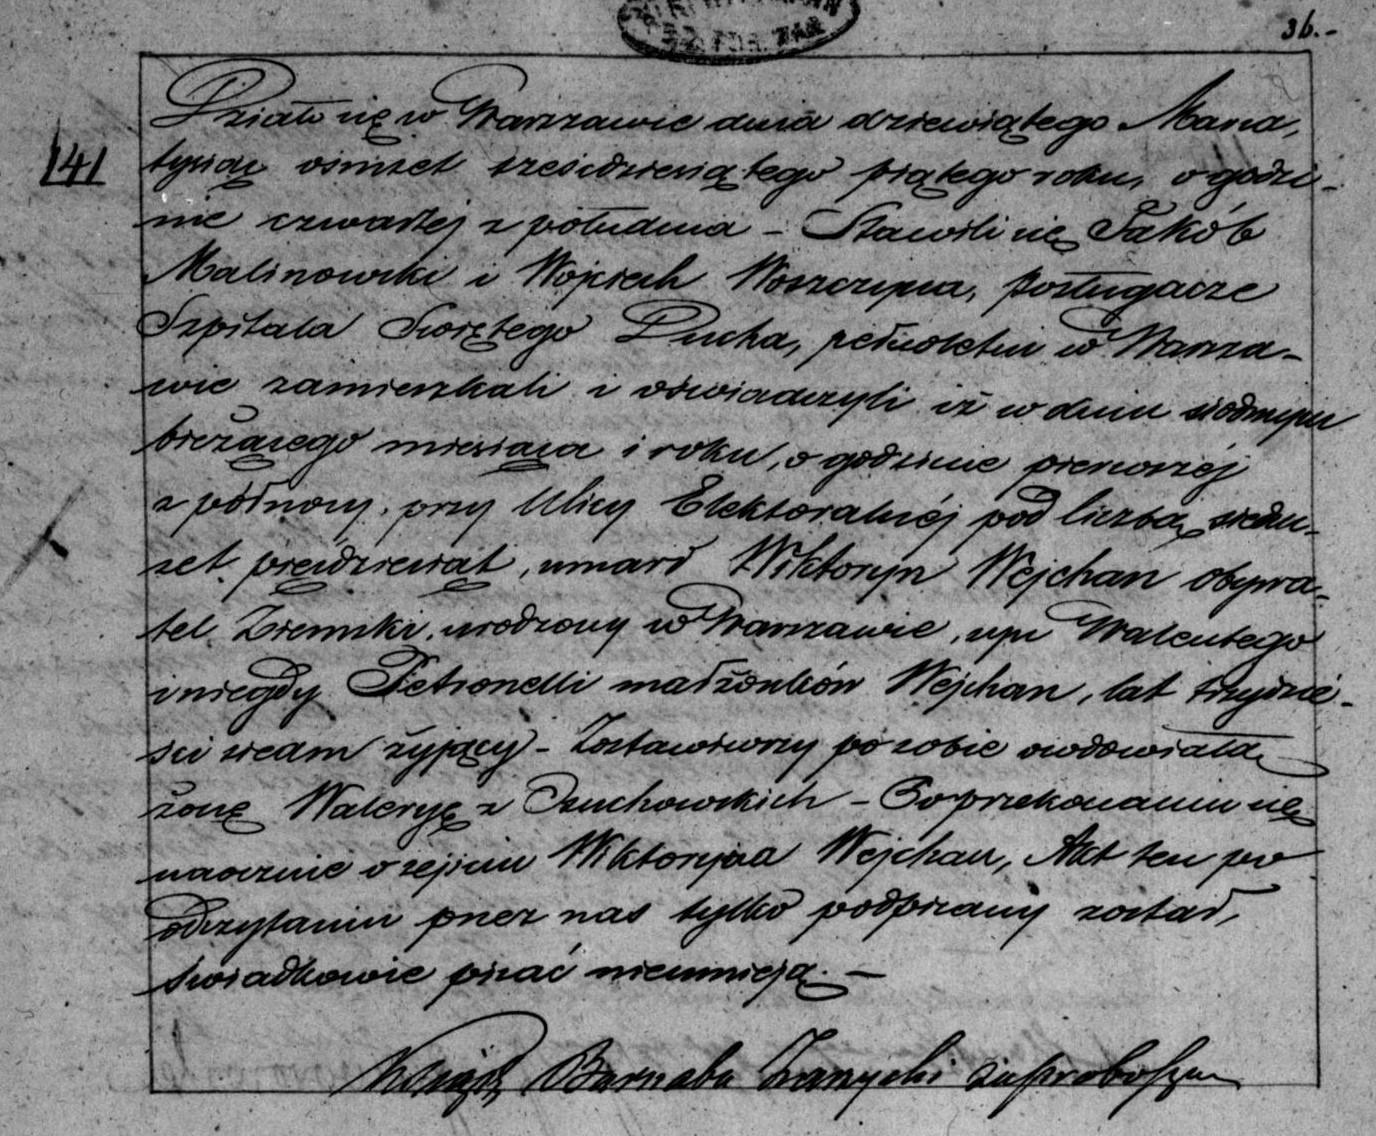 36.-
141
Działo się w Warszawie dnia dziewiątego Marca,
tysiąc ośmset sześćdziesiątego piątego roku, o godzi-
nie czwartej z południa - Stawili się Jakób
Malinowski i Wojciech Woszczyna, posługacze
Szpitala Świętego Ducha, pełnoletni w Warsza-
wie zamieszkali i oświadczyli iż w dniu siódmym
bieżącego miesiąca i roku, o godzinie pierwszéj
z północy, przy Ulicy Elektoralnéj pod liczbą siedm-
set pięćdziesiąt, umarł Wiktoryn Wejchan obywa-
tel Ziemski, urodzony w Warszawie, syn Walentego
i niegdy Petronelli małżonków Wejchan, lat trzydzie-
ści siedm żyjący - Zostawiwszy po sobie owdowiałą
żonę Waleryę z - Po przekonaniu się
naocznie o zejściu Wiktoryna Wejchan, Akt ten po
odczytaniu przez nas tylko podpisany został,
świadkowie pisać nieumieją. -
Ksiądz Barnaba